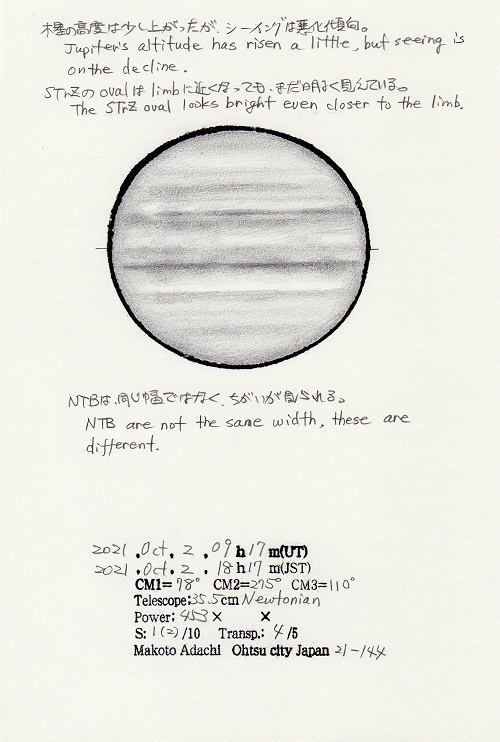 木星の高度は少し上がったが、シーイングは悪化傾向。
Jupiter's altitude has risen a little, but seeing is
on the decline.
STrZの ovalは limbに近くなっても、まだ明るく見えている。
The STrZ oval looks bright even closer to the limb.
NTBは、同じ幅ではなく、ちがいが見られる。
NTB are not the same width, these are
different.
2021 .Oct. 2 .09 h 17 m(UT)
2021 .Oct. 2 .18 h 17 m(JST)
CM1= 98° CM2=275° CM3=110°
Telescope:35.5cm Newtonian
Power: 453 × ×
S: 1(2)/10 Transp.: 4/5
Makoto Adachi Ohtsu city Japan 21-144